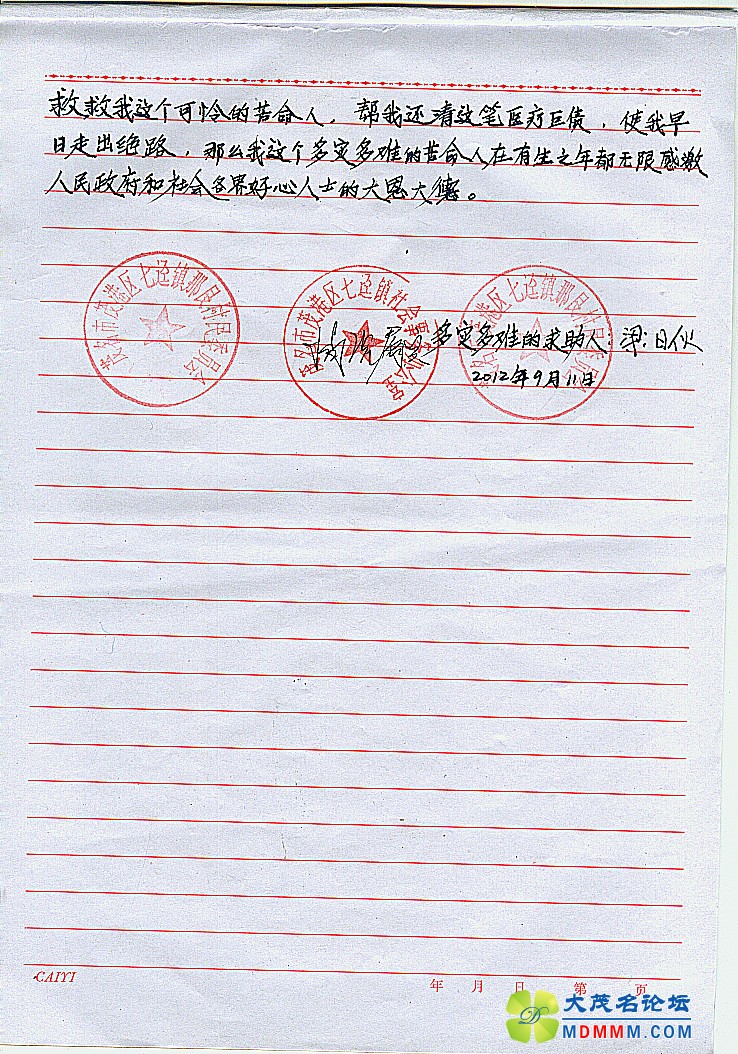 救救我这个可怜的苦命人，帮我还清这笔医疗巨债，使我早
日走出绝路，那么我这个多灾多难的苦命人在有生之年都无限感激
人民政府和社会各界好心人士的大恩大德。
茂名市茂港区七迳镇那良村民委员会
茂名市茂港区七迳镇社会事务办公室
茂名市茂港区七迳镇那良村民委员会
多灾多难的求助人：梁日伙
2012年9月11日
CAIYI
年 月 日 第 页
大茂名论坛
MDMMM.COM